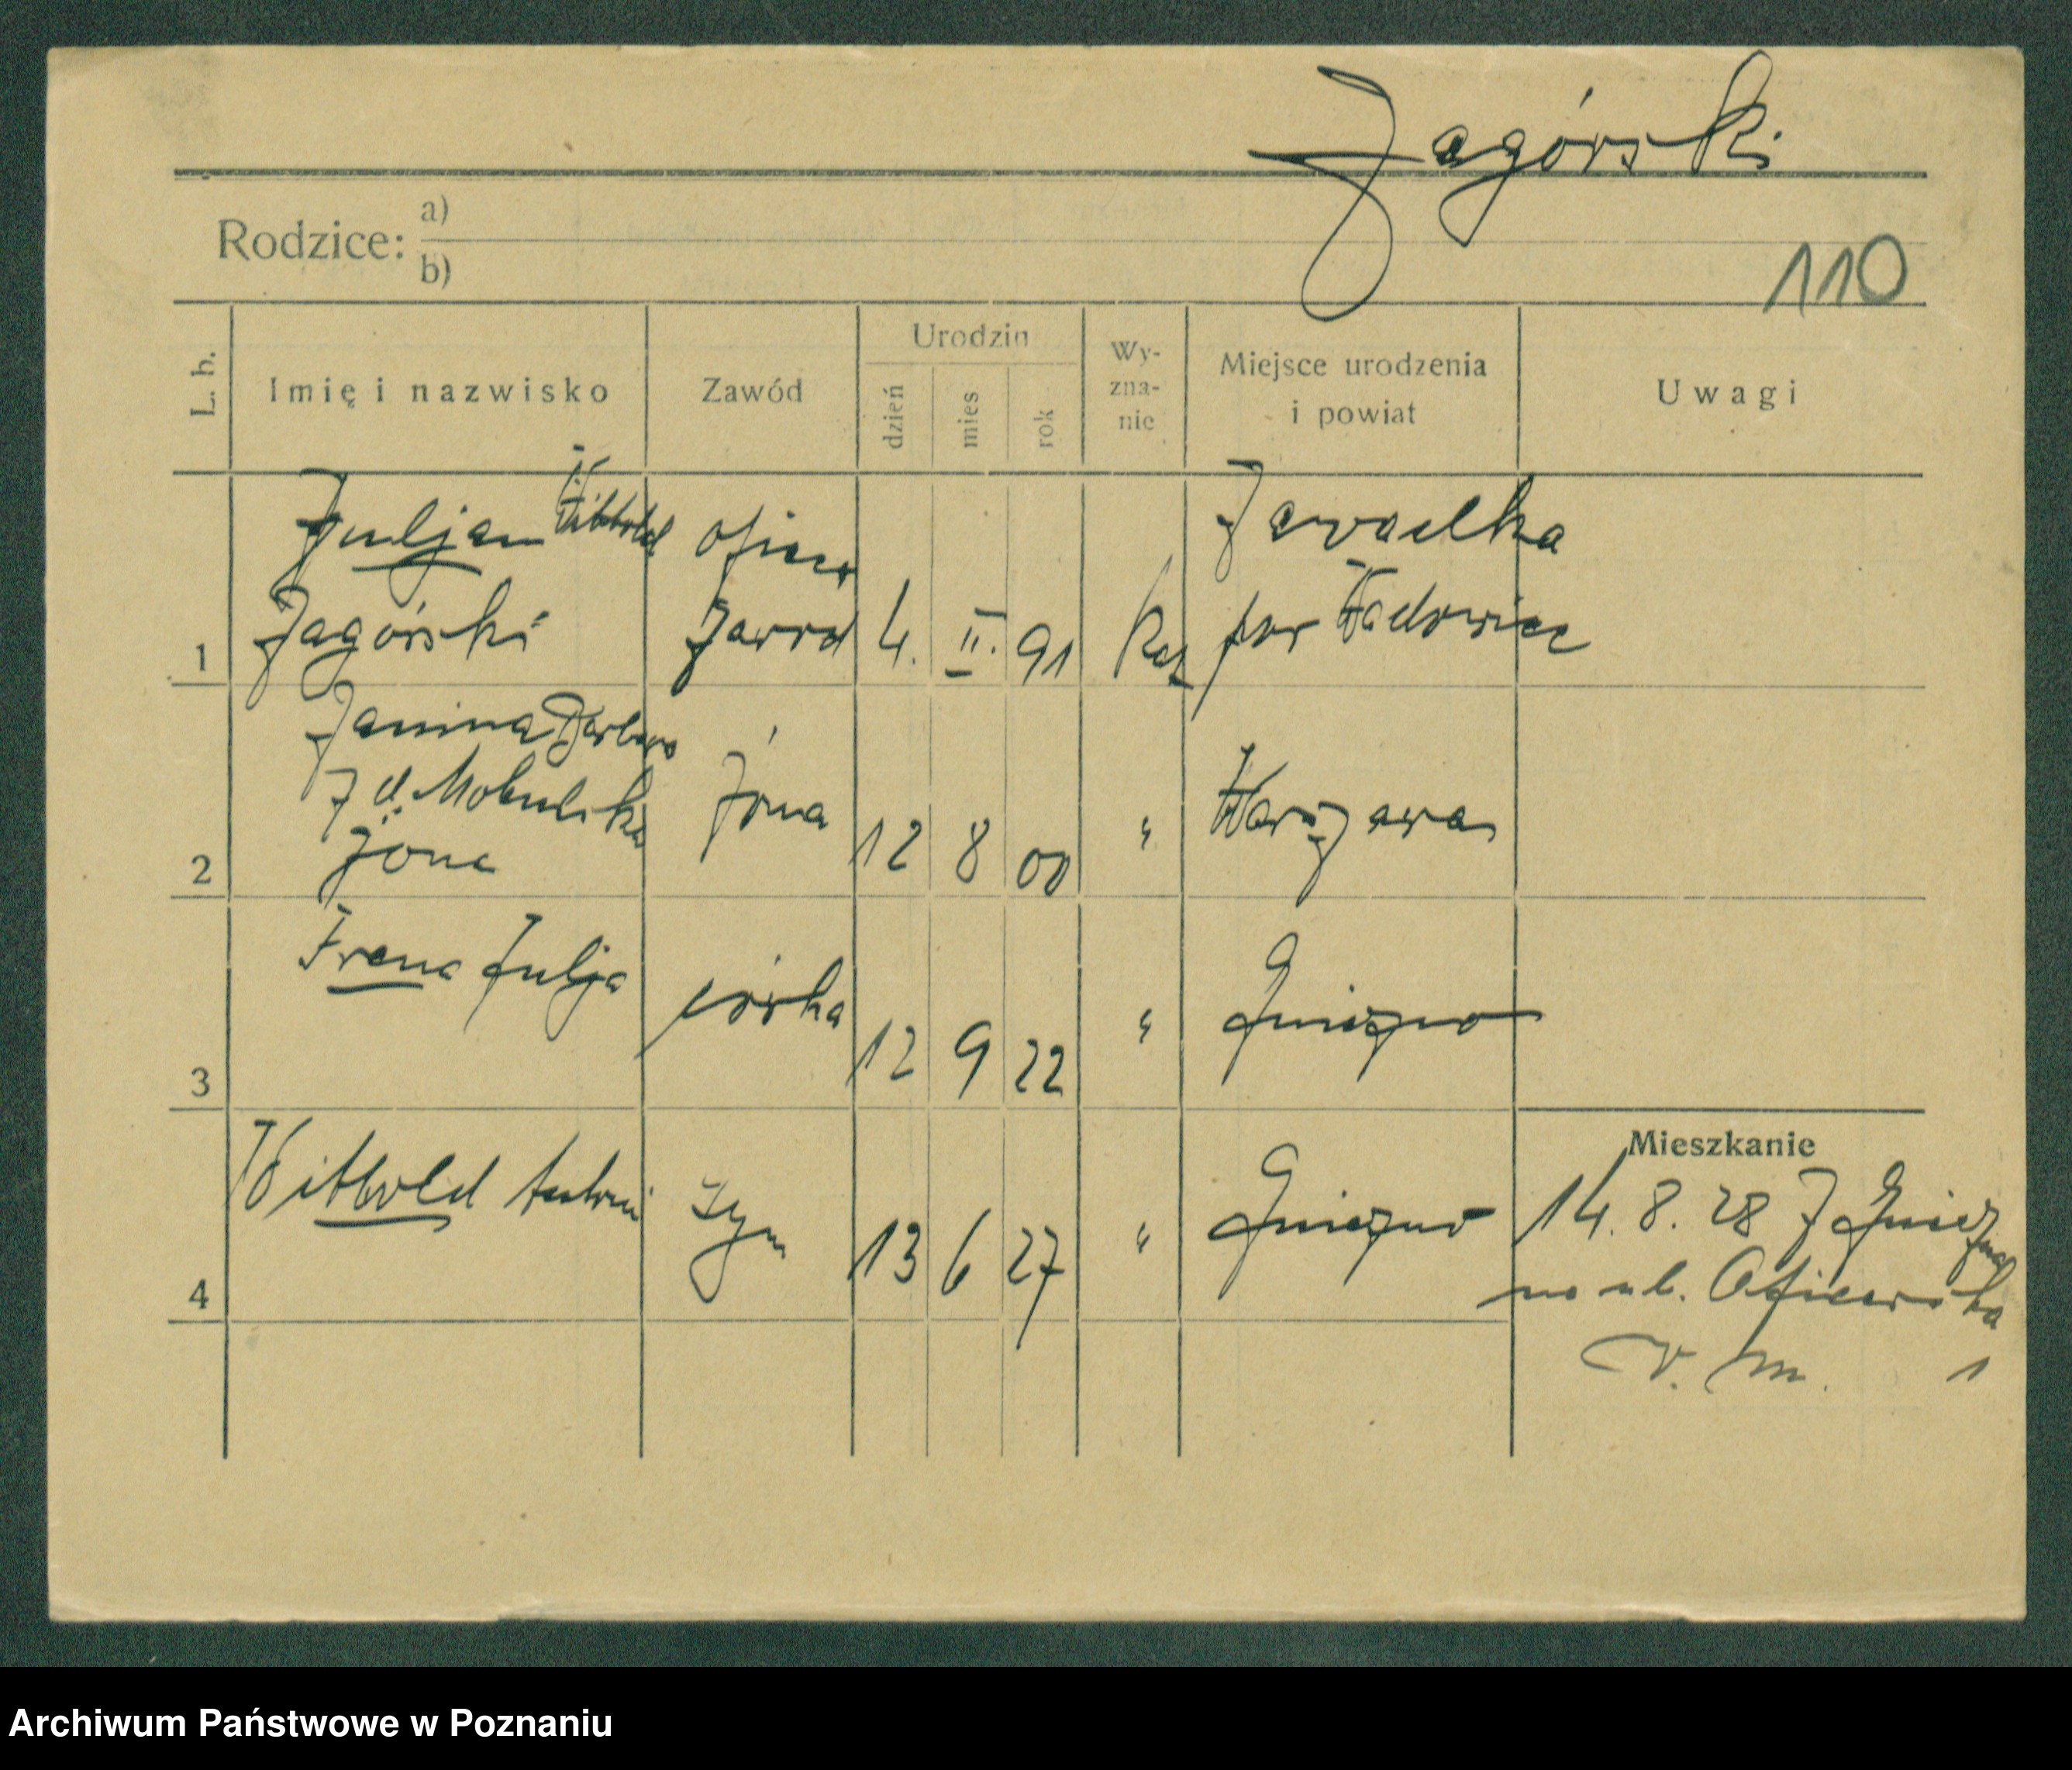 Zagórski
Rodzice: a)
b)
110
L. b.
Imię i nazwisko
Zawód
Urodzin
dzień
mies
rok
Wy-
zna-
nie
Miejsce urodzenia
i powiat
Uwagi
1
Juljan Wittold
Zagórski
oficer
zawod
4. II. 91
Kat
Zawadka
pow Wadowice
2
Janina Barbara
z d.
żona
żona
12 8 00
"
Warszawa
3
Irena Julja
córka
12 9 22
"
Gniezno
4
Wittold Antoni
syn
13 6 27
"
Gniezno
Mieszkanie
14. 8. 28 z Gniezna
na ul. Oficerska
1
Archiwum Państwowe w Poznaniu